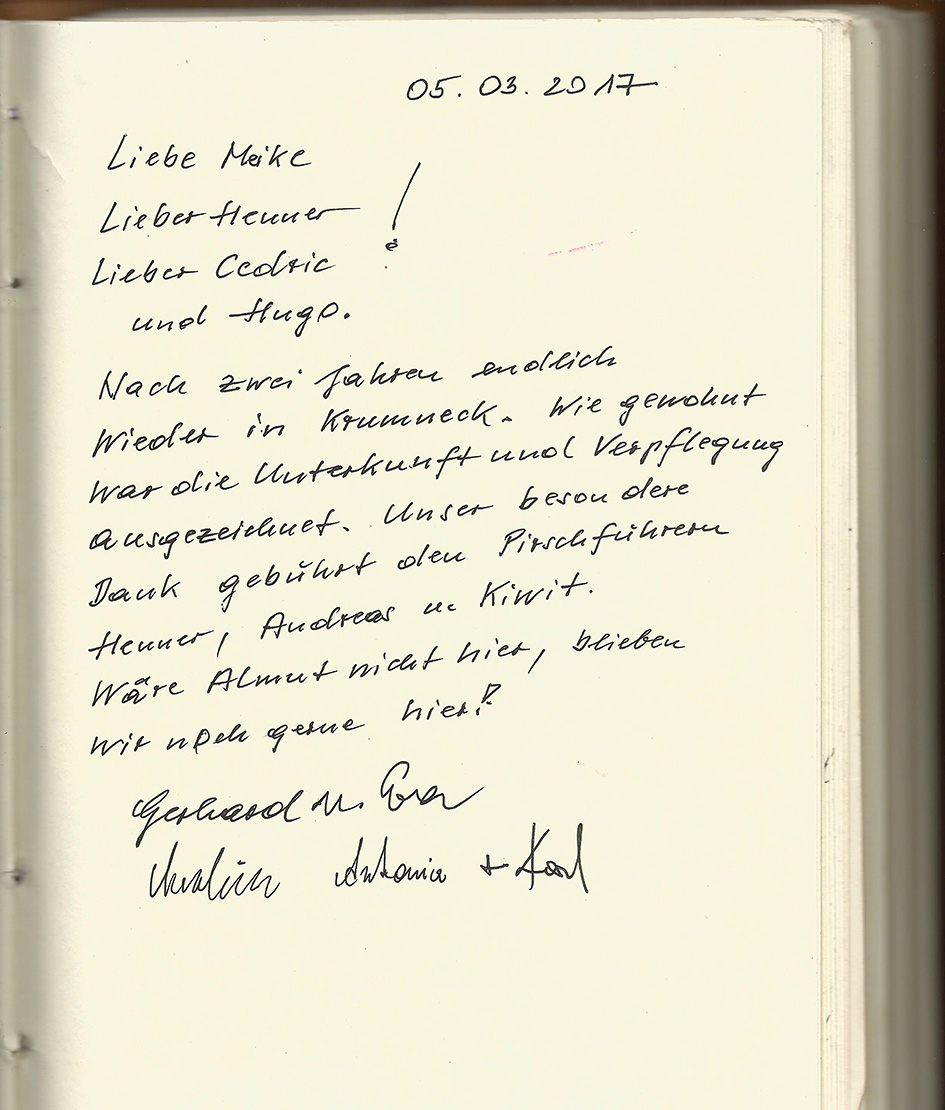 05.03.2017
Liebe Meike
Lieber Henner !
Lieber Cedric
und Hugo.
Nach zwei Jahren endlich
Wieder in Krumneck. Wie gewohnt
War die Unterkunft und Verpflegung
ausgezeichnet. Unser besondere
Dank gebührt den Pirschführern
Henner, Andreas u. Kiwit.
Wäre Almut nicht hier, blieben
Wir noch gerne hier!
Gerhard u. Eva
Antonia + Karl